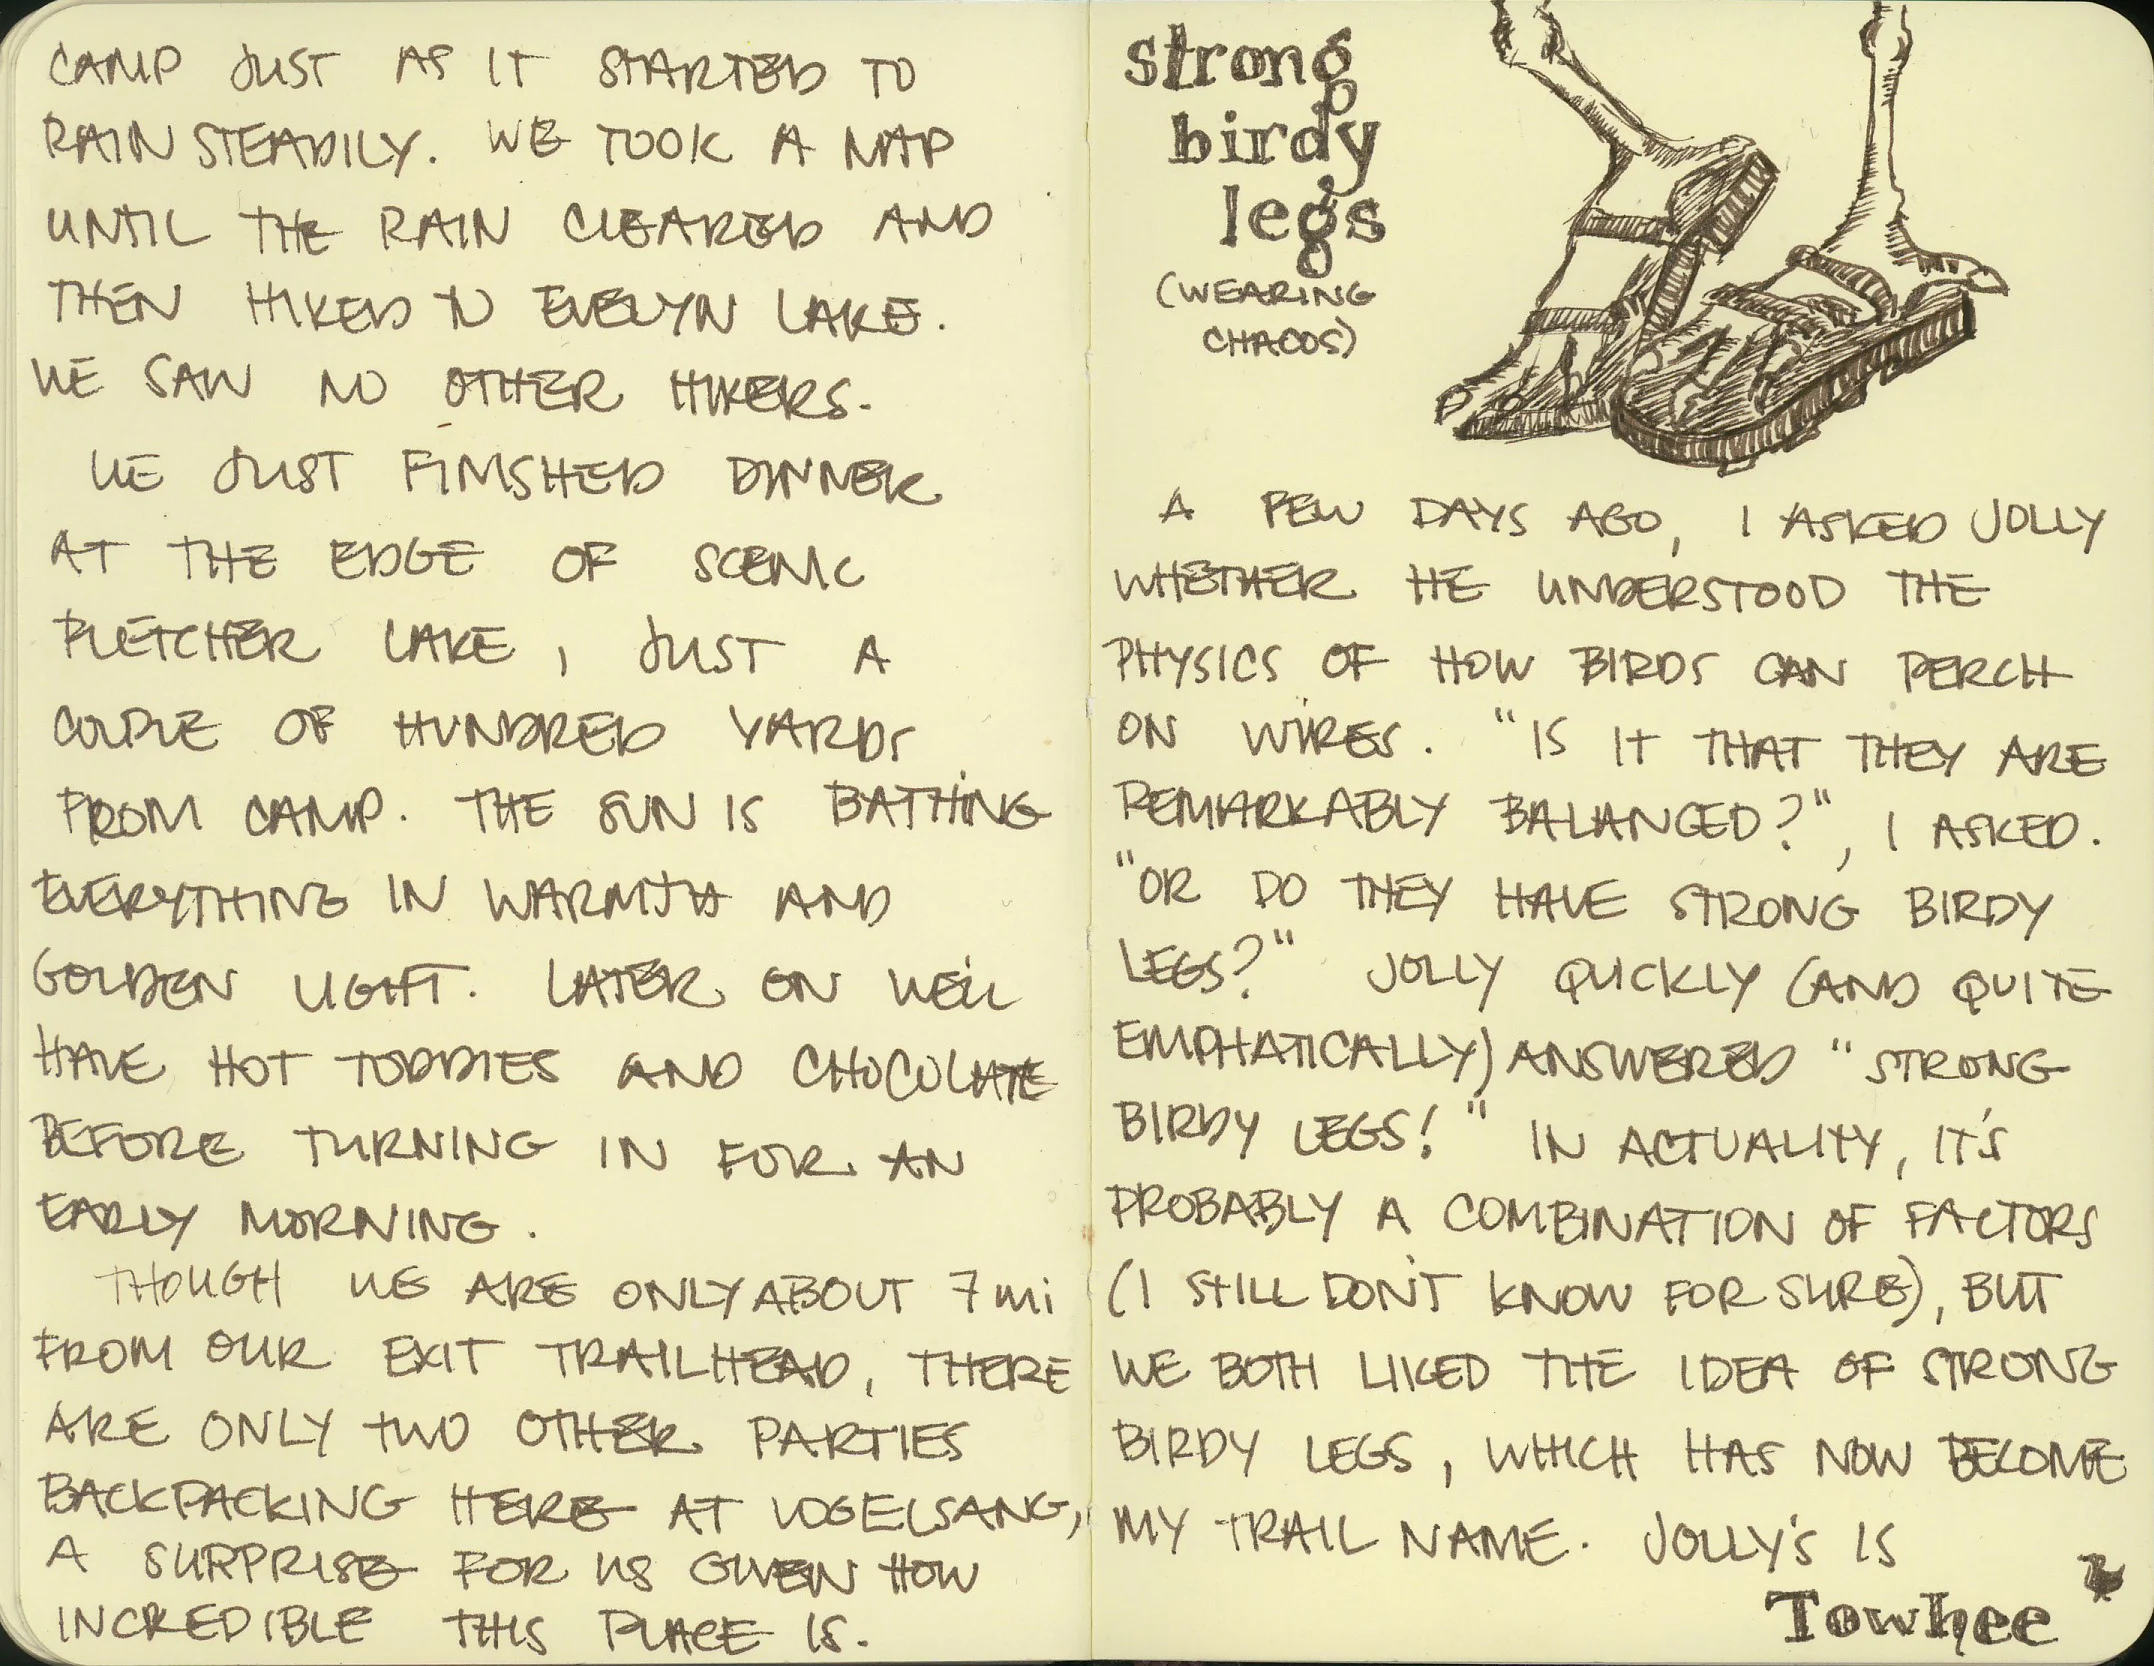 CAMP JUST AS IT STARTED TO
RAIN STEADILY. WE TOOK A NAP
UNTIL THE RAIN CLEARED AND
THEN HIKED TO EVELYN LAKE.
WE SAW NO OTHER HIKERS.
WE JUST FINISHED DINNER
AT THE EDGE OF SCENIC
FLETCHER LAKE, JUST A
COUPLE OF HUNDRED YARDS
FROM CAMP. THE SUN IS BATHING
EVERYTHING IN WARMTH AND
GOLDEN LIGHT. LATER ON WE'LL
HAVE HOT TODDIES AND CHOCOLATE
BEFORE TURNING IN FOR AN
EARLY MORNING.
THOUGH WE ARE ONLY ABOUT 7 mi
FROM OUR EXIT TRAILHEAD, THERE
ARE ONLY TWO OTHER PARTIES
BACKPACKING HERE AT VOGELSANG,
A SURPRISE FOR US GIVEN HOW
INCREDIBLE THIS PLACE IS.
strong
birdy
legs
(WEARING
CHACOS)
A FEW DAYS AGO, I ASKED JOLLY
WHETHER HE UNDERSTOOD THE
PHYSICS OF HOW BIRDS CAN PERCH
ON WIRES. "IS IT THAT THEY ARE
REMARKABLY BALANCED?", I ASKED.
"OR DO THEY HAVE STRONG BIRDY
LEGS?" JOLLY QUICKLY (AND QUITE
EMPHATICALLY) ANSWERED "STRONG
BIRDY LEGS!" IN ACTUALITY, IT'S
PROBABLY A COMBINATION OF FACTORS
(I STILL DON'T KNOW FOR SURE), BUT
WE BOTH LIKED THE IDEA OF STRONG
BIRDY LEGS, WHICH HAS NOW BECOME
MY TRAIL NAME. JOLLY'S IS
Towhee